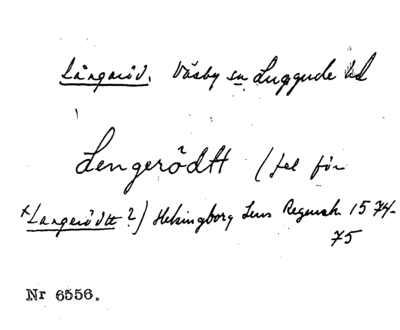 Långaröd. Väsby sn Luggude hd
Lengerödtt (fel för
*Langerödtt?) Helsingborg Lens Regensk. 1574-
75
Nr 6556.